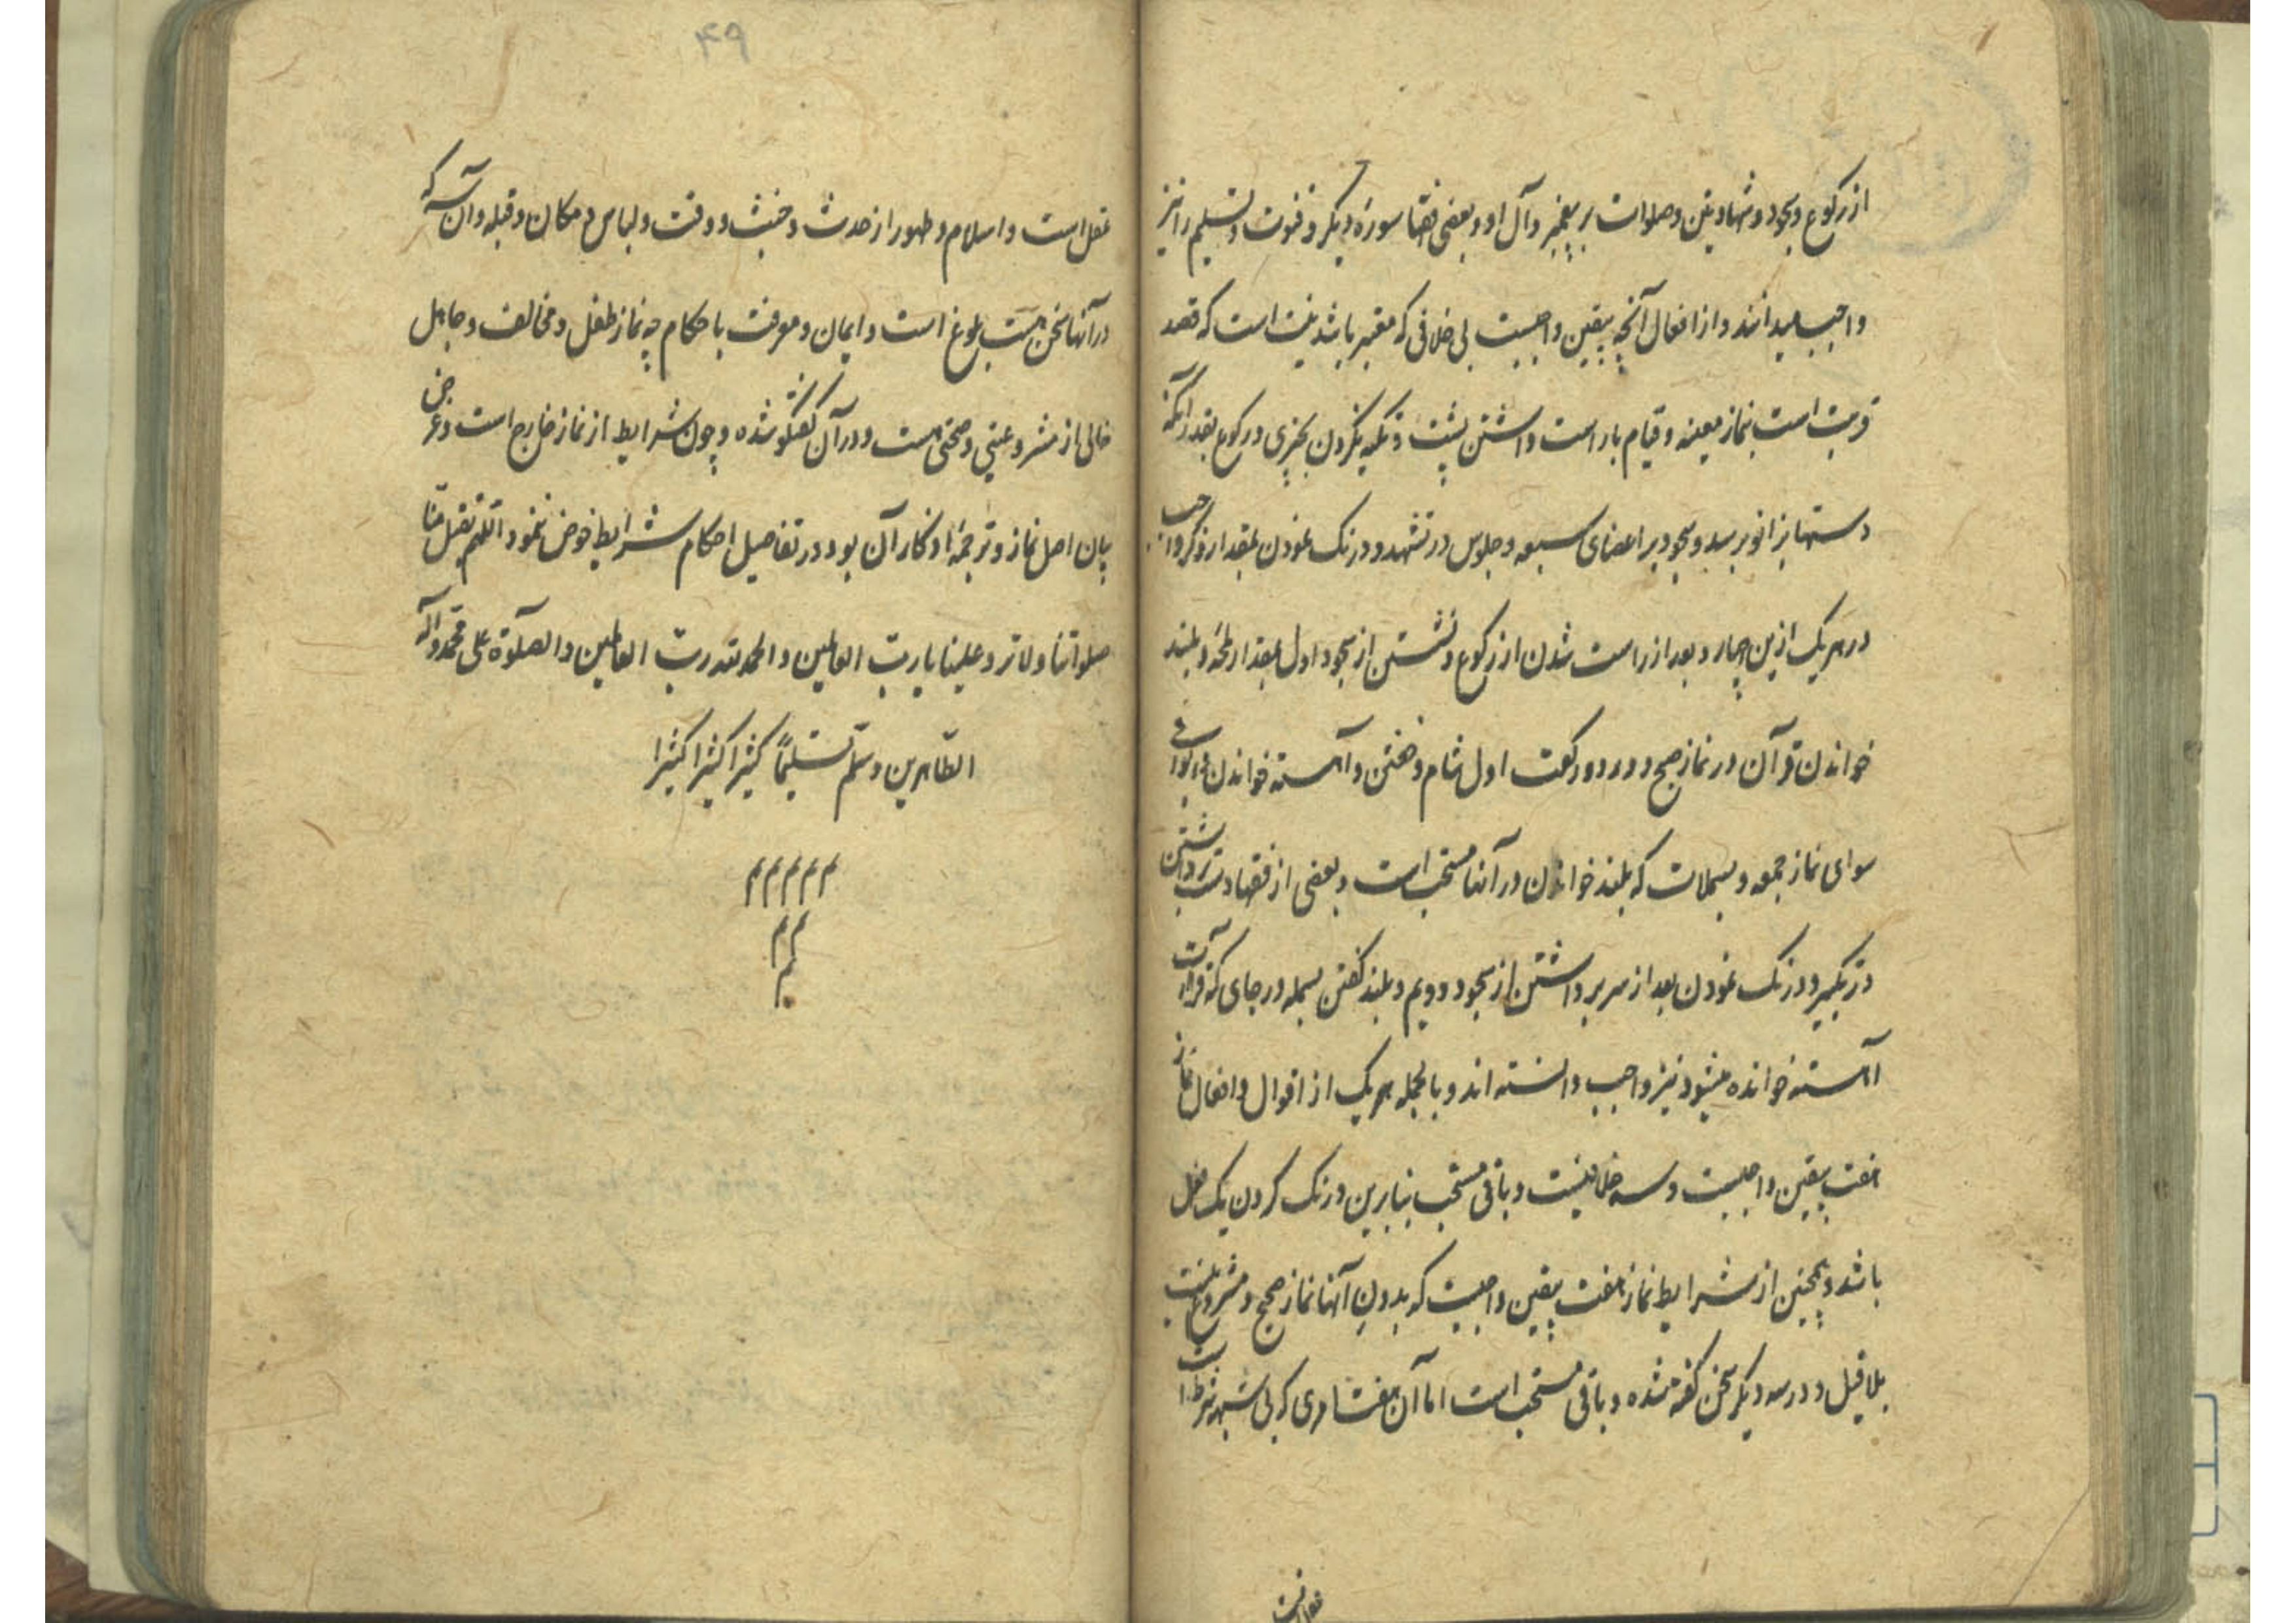 از رکوع و سجود و شهادتین و صلوات بر پیغمبر و آل او و بعضی فقها سوره دیگر و قنوت و تسلیم را نیز
واجب میدانند و از افعال آنچه بیقین واجبست بی خلافی که معتبر باشد نیت است که قصد
قربت است بنماز معینه و قیام با راست داشتن پشت و تکیه نکردن بچیزی و رکوع بقدر آنکه
دستها بزانو برسد و سجود بر اعضای سبعه و جلوس در تشهد و درنک نمودن بمقدار ذکر واجب
در هر یک ازین چهار و بعد از راست شدن از رکوع و نشستن از سجود اول بمقدار لمحه و بلند
خواندن قرآن در نماز صبح و در دو رکعت اول شام و خفتن و آهسته خواندن در بواقی
سوای نماز جمعه و بسملات که بلند خواندن در آنها مستحب است و بعضی از فقها دست برداشتن
در تکبیر و درنک نمودن بعد از سر برداشتن از سجود دویم و بلند کفتن بسمله در جای که قرآءت
آهسته خوانده میشود نیز واجب دانسته اند و بالجمله هر یک از اقوال و افعال نماز
هفت بیقین واجبست و سه خلافیست و باقی مستحب بنابرین درنک کردن یک فعل
باشد و همچنین از شرایط نماز هفت بیقین واجبست که بدون آنها نماز صحیح و مشروع نیست
بلا قیل و در سه دیکر سخن کفته شده و باقی مستحب است اما آن هفت امری که بی شبهه شرط است
عقلست
۴۹
عقل است و اسلام و طهور از حدث و خبث و وقت و لباس و مکان و قبله و آن سه که
در آنها سخن هست بلوغ است و ایمان و معرفت باحکام چه نماز طفل و مخالف و جاهل
خالی از مشروعیتی و صحتی نیست و در آن کفتکو شده و چون شرایط از نماز خارج است و غرض
بیان اصل نماز و ترجمهٔ اذکار آن بود در تفاصیل احکام شرایط خوض ننمود اللهم تقبل منا
صلواتنا ولا ترد علینا یا ربّ العالمین والحمد لله ربّ العالمین والصلوة علی محمد وآله
الطّاهرین وسلّم تسلیمًا کثیرا کثیرا کثیرا
م م م م م
م م
م